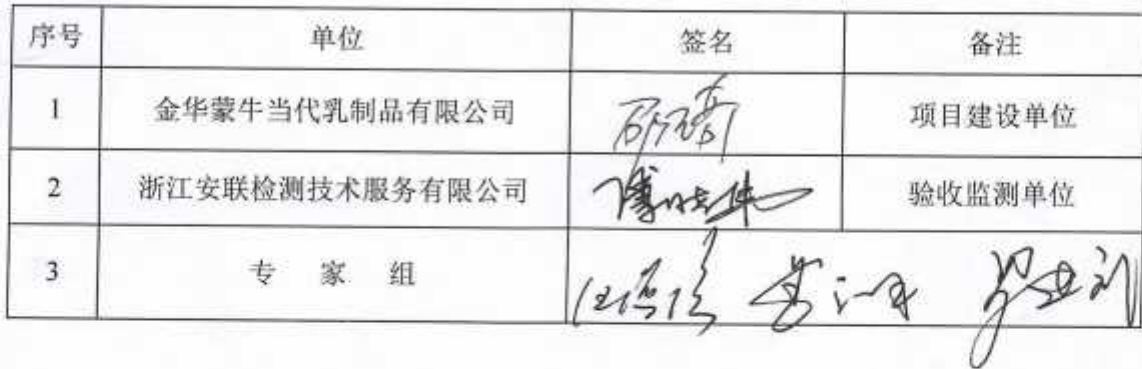 序号 单位 签名 备注
1 金华蒙牛当代乳制品有限公司 项目建设单位
2 浙江安联检测技术服务有限公司 验收监测单位
3 专 家 组